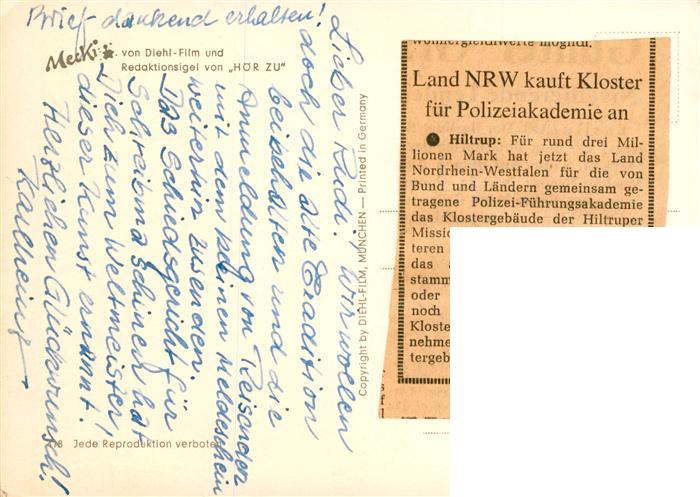 Brief dankend erhalten!
Mecki
. von Diehl-Film und
Redaktionsigel von „HÖR ZU"
Lieber Rudi! Wir wollen
doch die alte Tradition
beibehalten und die
Anmeldung von Reisenden
mit dem kleinen Meldeschein
weiterhin zusenden.
Das Schiedsgericht für
Schreibmaschinen hat
Dich zum Weltmeister
dieser Kunst ernannt!
Herzlichen Glückwunsch!
Karlheinz
Copyright by DIEHL-FILM, MÜNCHEN — Printed in Germany
118 Jede Reproduktion verboten
wohnergleidwerte möglich.
Land NRW kauft Kloster
für Polizeiakademie an
● Hiltrup: Für rund drei Mil-
lionen Mark hat jetzt das Land
Nordrhein-Westfalen für die von
Bund und Ländern gemeinsam ge-
tragene Polizei-Führungsakademie
das Klostergebäude der Hiltruper
Missio
teren
das
stamm
oder
noch
Kloste
nehme
tergeb